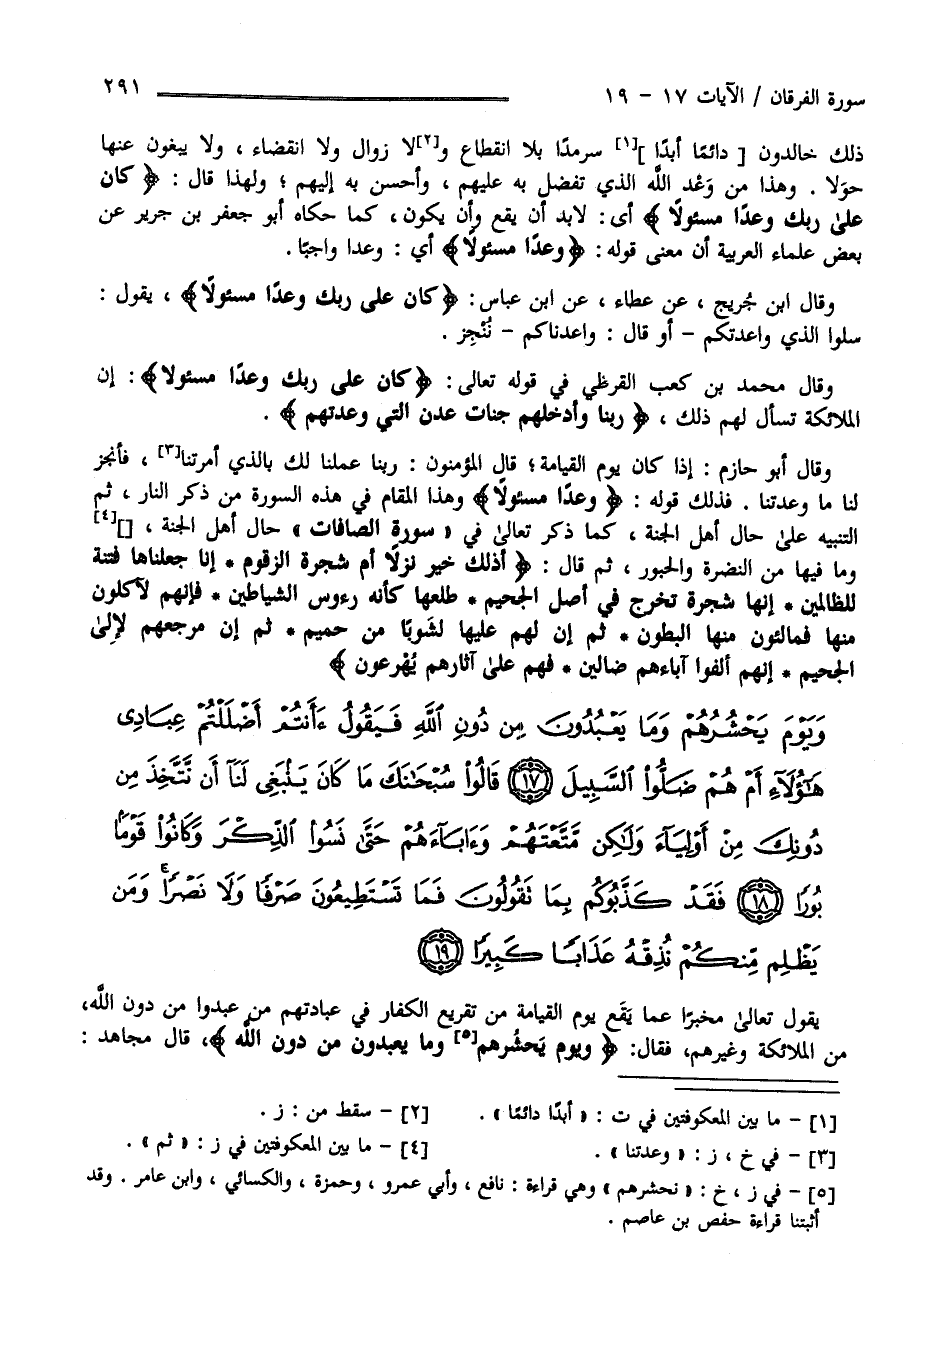 سورة الفرقان / الآيات ١٧ - ١٩ ٢٩١
ذلك خالدون [ دائمًا أبدًا ][١] سرمدًا بلا انقطاع و[٢]لا زوال ولا انقضاء ، ولا يبغون عنها
حوَلا . وهذا من وَعْد اللَّه الذي تفضل به عليهم ، وأحسن به إليهم ؛ ولهذا قال : ﴿ كان
علىٰ ربك وعدًا مسئولًا ﴾ أى : لابد أن يقع وأن يكون ، كما حكاه أبو جعفر بن جرير عن
بعض علماء العربية أن معنى قوله : ﴿ وعدًا مسئولًا ﴾ أي : وعدا واجبًا .
وقال ابن جُريج ، عن عطاء ، عن ابن عباس : ﴿ كان على ربك وعدًا مسئولًا ﴾ ، يقول :
سلوا الذي واعدتكم - أو قال : واعدناكم - نُنْجِز .
وقال محمد بن كعب القرظي في قوله تعالى : ﴿ كان على ربك وعدًا مسئولا ﴾ : إن
الملائكة تسأل لهم ذلك ، ﴿ ربنا وأدخلهم جنات عدن التي وعدتهم ﴾ .
وقال أبو حازم : إذا كان يوم القيامة ؛ قال المؤمنون : ربنا عملنا لك بالذي أمرتنا[٣] ، فأنجز
لنا ما وعدتنا . فذلك قوله : ﴿ وعدًا مسئولًا ﴾ وهذا المقام في هذه السورة من ذكر النار ، ثم
التنبيه علىٰ حال أهل الجنة ، كما ذكر تعالىٰ في « سورة الصافات » حال أهل الجنة ، [][٤]
وما فيها من النضرة والحبور ، ثم قال : ﴿ أذلك خير نزلًا أم شجرة الزقوم * إنا جعلناها فتنة
للظالمين * إنها شجرة تخرج في أصل الجحيم * طلعها كأنه رءوس الشياطين * فإنهم لآكلون
منها فمالئون منها البطون * ثم إن لهم عليها لشَوبًا من حميم * ثم إن مرجعهم لإلىٰ
الجحيم * إنهم ألفوا آباءهم ضالين * فهم علىٰ آثارهم يُهْرعون ﴾
وَيَوْمَ يَحْشُرُهُمْ وَمَا يَعْبُدُونَ مِن دُونِ ٱللَّهِ فَيَقُولُ ءَأَنتُمْ أَضْلَلْتُمْ عِبَادِى
هَٰٓؤُلَآءِ أَمْ هُمْ ضَلُّوا۟ ٱلسَّبِيلَ ١٧ قَالُوا۟ سُبْحَٰنَكَ مَا كَانَ يَنۢبَغِى لَنَآ أَن نَّتَّخِذَ مِن
دُونِكَ مِنْ أَوْلِيَآءَ وَلَٰكِن مَّتَّعْتَهُمْ وَءَابَآءَهُمْ حَتَّىٰ نَسُوا۟ ٱلذِّكْرَ وَكَانُوا۟ قَوْمًۢا
بُورًا ١٨ فَقَدْ كَذَّبُوكُم بِمَا تَقُولُونَ فَمَا تَسْتَطِيعُونَ صَرْفًا وَلَا نَصْرًا ۚ وَمَن
يَظْلِم مِّنكُمْ نُذِقْهُ عَذَابًا كَبِيرًا ١٩
يقول تعالىٰ مخبرًا عما يَقَع يوم القيامة من تقريع الكفار في عبادتهم من عبدوا من دون اللَّه،
من الملائكة وغيرهم، فقال: ﴿ ويوم يَحشُرهم[٥] وما يعبدون من دون اللَّه ﴾، قال مجاهد :
[١] - ما بين المعكوفتين في ت : « أبدًا دائمًا » . [٢] - سقط من : ز .
[٣] - في خ ، ز : « وعدتنا » . [٤] - ما بين المعكوفتين في ز : « ثم » .
[٥] - في ز ، خ : « نحشرهم » وهي قراءة : نافع ، وأبي عمرو ، وحمزة ، والكسائي ، وابن عامر . وقد
أثبتنا قراءة حفص بن عاصم .